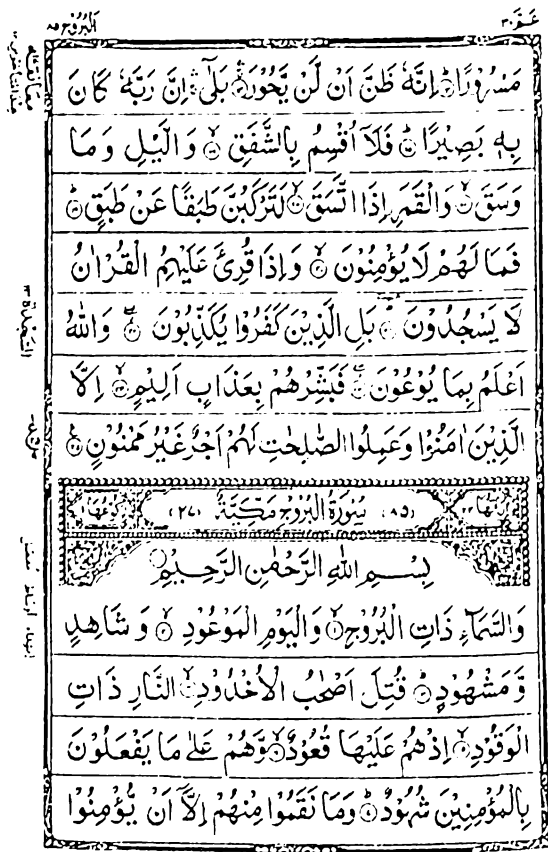 عـمّ ٣٠
البروج ٨٥
مَسْرُوْرًا ۝ اِنَّهٗ ظَنَّ اَنْ لَّنْ يَّحُوْرَ ۝ بَلٰٓى ۛ اِنَّ رَبَّهٗ كَانَ
بِهٖ بَصِيْرًا ۝ فَلَآ اُقْسِمُ بِالشَّفَقِ ۝ وَالَّيْلِ وَمَا
وَسَقَ ۝ وَالْقَمَرِ اِذَا اتَّسَقَ ۝ لَتَرْكَبُنَّ طَبَقًا عَنْ طَبَقٍ ۝
فَمَا لَهُمْ لَا يُؤْمِنُوْنَ ۝ وَاِذَا قُرِئَ عَلَيْهِمُ الْقُرْاٰنُ
لَا يَسْجُدُوْنَ ۝ بَلِ الَّذِيْنَ كَفَرُوْا يُكَذِّبُوْنَ ۝ وَاللّٰهُ
اَعْلَمُ بِمَا يُوْعُوْنَ ۝ فَبَشِّرْهُمْ بِعَذَابٍ اَلِيْمٍ ۝ اِلَّا
الَّذِيْنَ اٰمَنُوْا وَعَمِلُوا الصّٰلِحٰتِ لَهُمْ اَجْرٌ غَيْرُ مَمْنُوْنٍ ۝
(٨٥) سُوْرَةُ الْبُرُوْجِ مَكِّيَّةٌ (٢٧)
بِسْمِ اللّٰهِ الرَّحْمٰنِ الرَّحِيْمِ
وَالسَّمَآءِ ذَاتِ الْبُرُوْجِ ۝ وَالْيَوْمِ الْمَوْعُوْدِ ۝ وَشَاهِدٍ
وَّمَشْهُوْدٍ ۝ قُتِلَ اَصْحٰبُ الْاُخْدُوْدِ ۝ النَّارِ ذَاتِ
الْوَقُوْدِ ۝ اِذْ هُمْ عَلَيْهَا قُعُوْدٌ ۝ وَّهُمْ عَلٰى مَا يَفْعَلُوْنَ
بِالْمُؤْمِنِيْنَ شُهُوْدٌ ۝ وَمَا نَقَمُوْا مِنْهُمْ اِلَّآ اَنْ يُّؤْمِنُوْا
السجدة ١٣